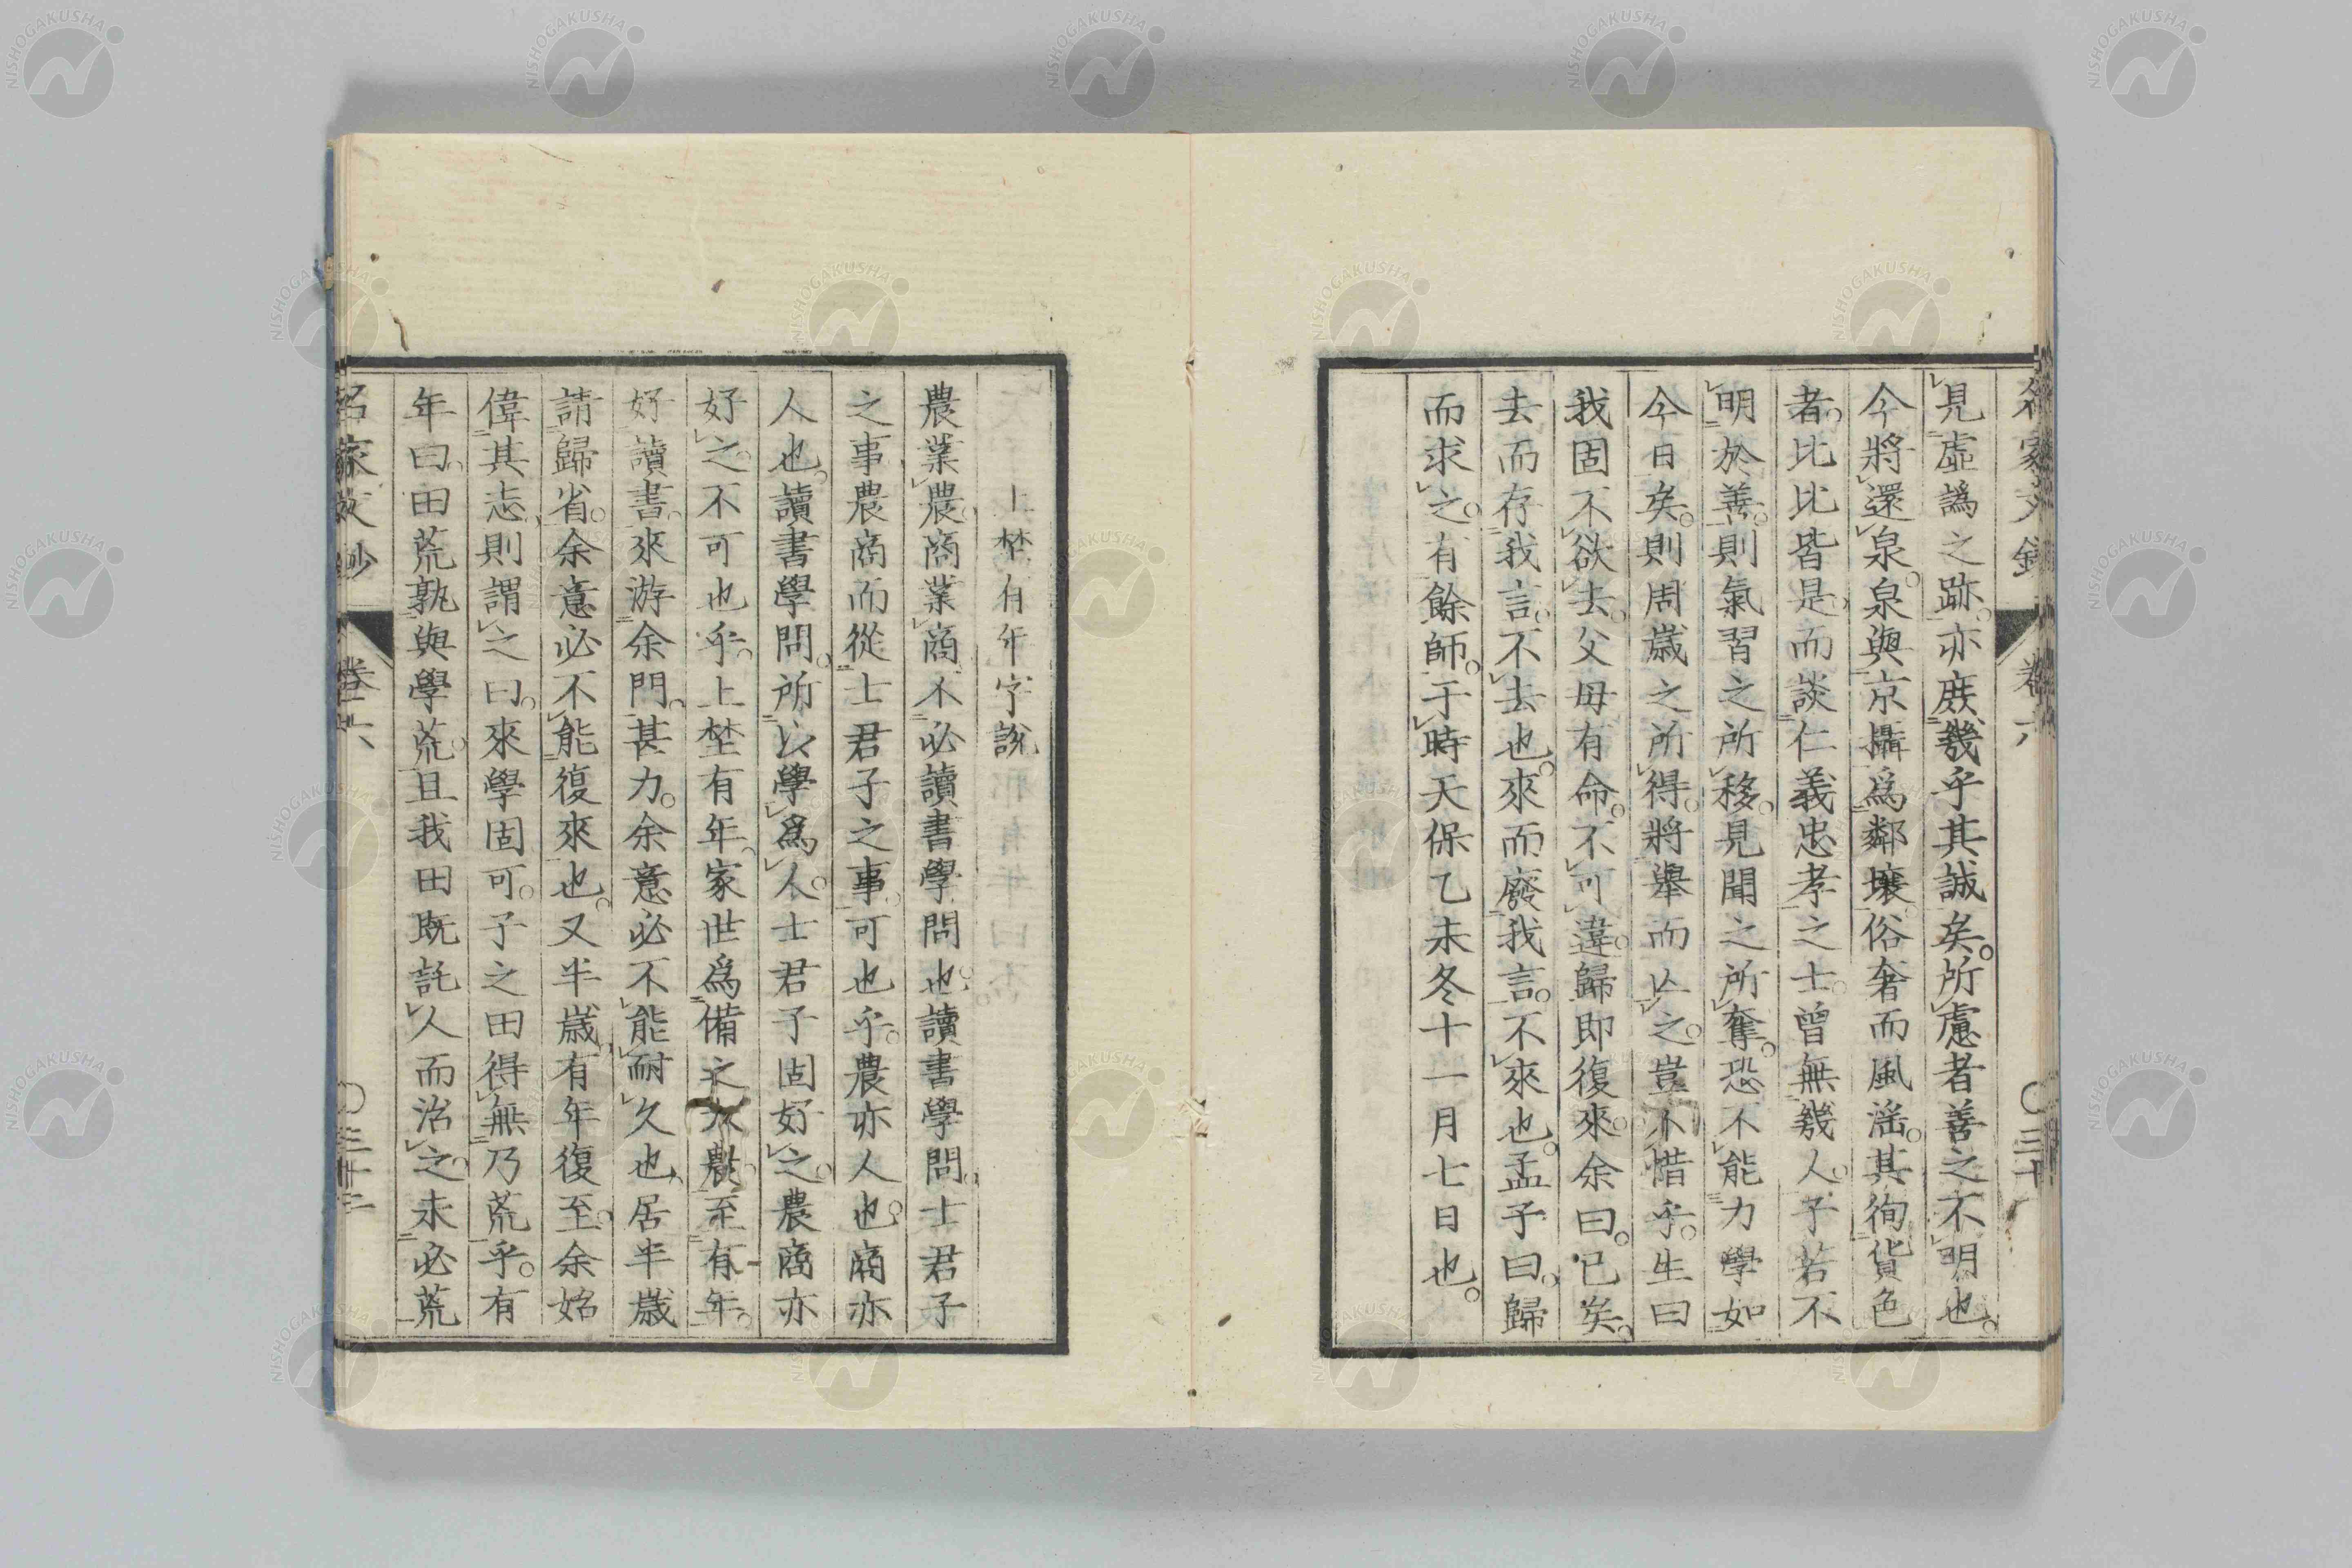 見虛譌之跡。亦庶幾乎其誠矣。所慮者善之不明也。
今將還泉。泉與京攝爲鄰壤俗奢而風滛。其徇貨色
者。比比皆是。而談仁義忠孝之士。曾無幾人。子若不
明於善。則氣習之所移。見聞之所奪。恐不能力學如
今日矣。則周歲之所得。將擧而亾之。豈不惜乎。生曰
我固不欲去。父母有命。不可違。歸即復來。余曰。已矣。
去而存我言。不去也。來而廢我言。不來也。孟子曰。歸
而求之。有餘師。于時天保乙未冬十一月七日也。
上埜有年字說
農業農。商業商。不必讀書學問也。讀書學問。士君子
之事農商而從士君子之事。可也乎。農亦人也。商亦
人也。讀書學問。所以學爲人。士君子固好之。農商亦
好之。不可也乎。上埜有年。家世爲備之大農。至有年。
好讀書。來游余門。甚力。余意必不能耐久也。居半歲
請歸省。余意必不能復來也。又半歲。有年復至。余始
偉其志。則謂之曰。來學固可。子之田得無乃荒乎。有
年曰。田荒孰與學荒。且我田既託人而治之。未必荒
名家文鈔
卷六
〇三十二